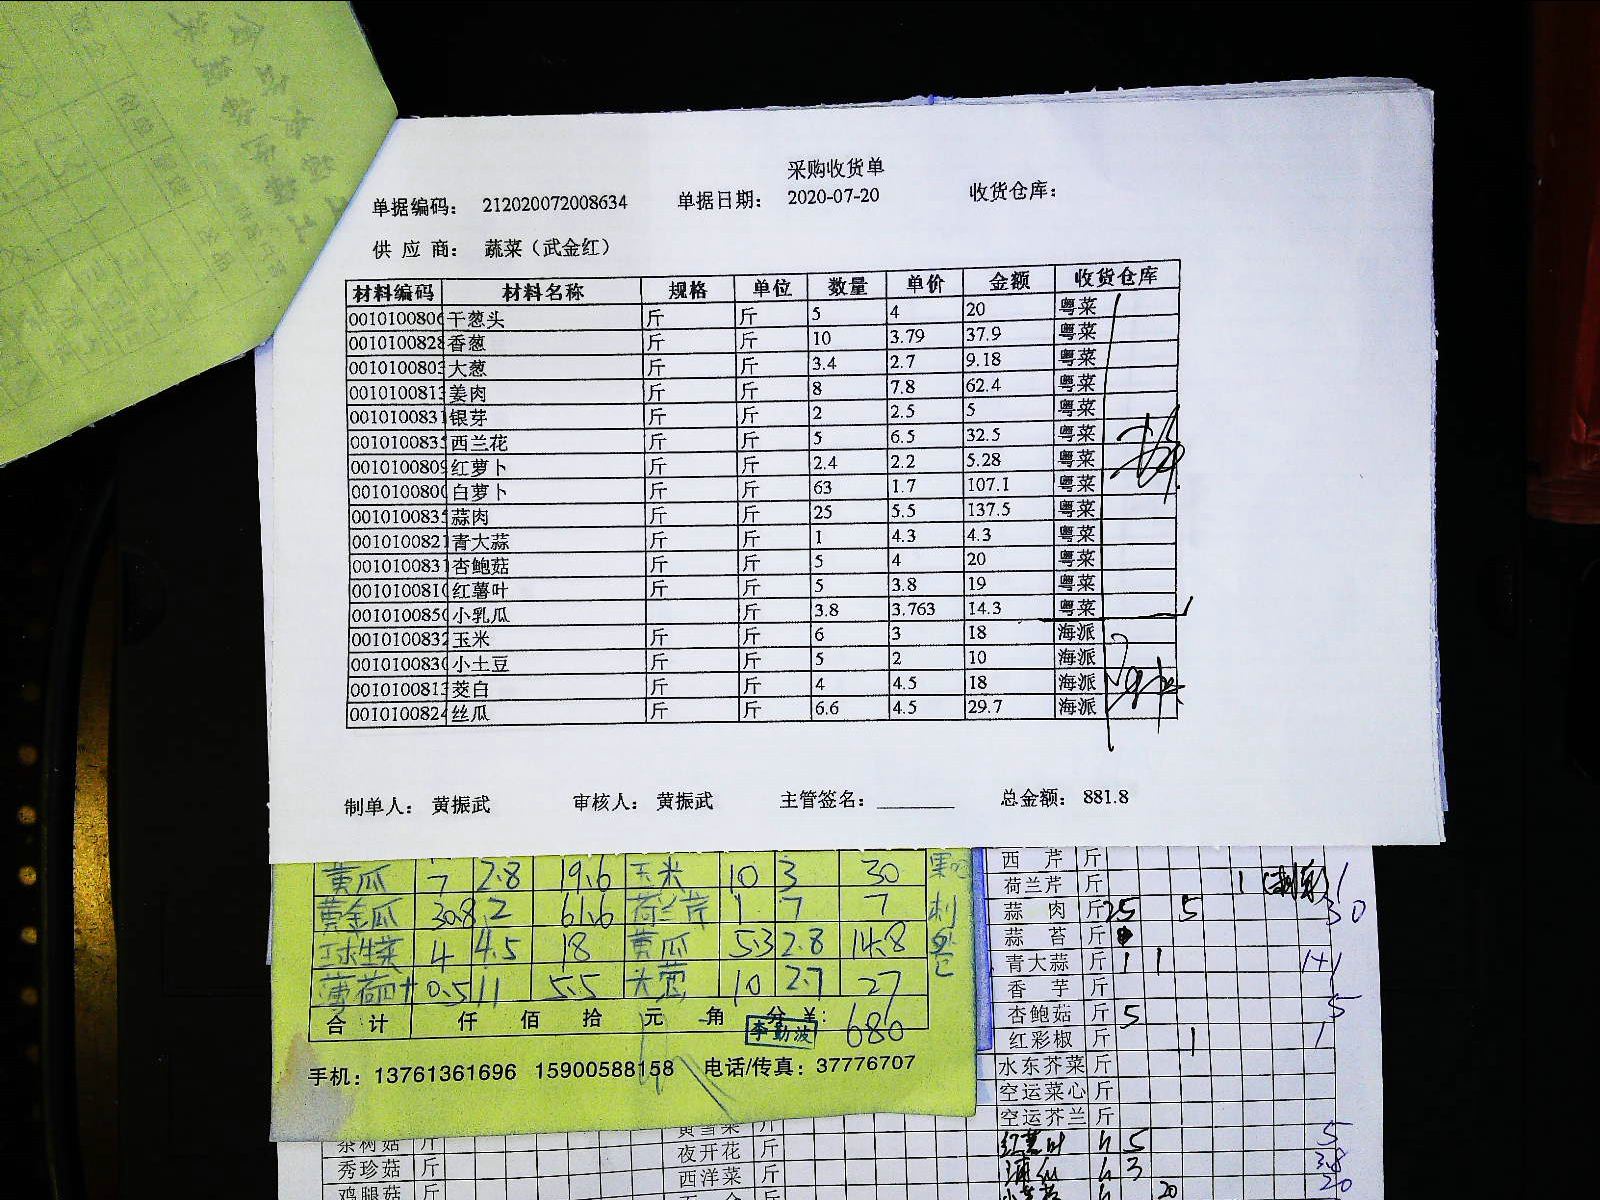 采购收货单
单据编码： 212020072008634 单据日期： 2020-07-20 收货仓库：
供 应 商： 蔬菜（武金红）
材料编码 材料名称 规格 单位 数量 单价 金额 收货仓库
0010100806 干葱头 斤 斤 5 4 20 粤菜
0010100828 香葱 斤 斤 10 3.79 37.9 粤菜
0010100803 大葱 斤 斤 3.4 2.7 9.18 粤菜
0010100813 姜肉 斤 斤 8 7.8 62.4 粤菜
0010100831 银芽 斤 斤 2 2.5 5 粤菜
001010083 西兰花 斤 斤 5 6.5 32.5 粤菜
0010100809 红萝卜 斤 斤 2.4 2.2 5.28 粤菜
0010100800 白萝卜 斤 斤 63 1.7 107.1 粤菜
001010083 蒜肉 斤 斤 25 5.5 137.5 粤菜
0010100821 青大蒜 斤 斤 1 4.3 4.3 粤菜
0010100831 杏鲍菇 斤 斤 5 4 20 粤菜
0010100810 红薯叶 斤 斤 5 3.8 19 粤菜
0010100850 小乳瓜 斤 3.8 3.763 14.3 粤菜
0010100832 玉米 斤 斤 6 3 18 海派
0010100830 小土豆 斤 斤 5 2 10 海派
0010100813 茭白 斤 斤 4 4.5 18 海派
0010100824 丝瓜 斤 斤 6.6 4.5 29.7 海派
制单人： 黄振武 审核人： 黄振武 主管签名：________ 总金额： 881.8
黄瓜 7 2.8 19.6 玉米 10 3 30
黄金瓜 30.8 2 61.6 荷兰芹 1 7 7
球生菜 4 4.5 18 黄瓜 5.3 2.8 14.8
薄荷叶 0.5 11 5.5 大葱 10 2.7 27
合 计 仟 佰 拾 元 角 分 ￥： 680
李勤波
手机：13761361696 15900588158 电话/传真：37776707
西 芹 斤
荷兰芹 斤 1 1
蒜 肉 斤 25 5 30
蒜 苔 斤
青大蒜 斤 1 1 1+1
香 芋 斤
杏鲍菇 斤 5 5
红彩椒 斤 1 1
水东芥菜 斤
空运菜心 斤
空运芥兰 斤
红薯叶 5 5
3 3.8
20 20
茶树菇 斤 黄雪菜 斤
秀珍菇 斤 夜开花 斤
鸡腿菇 斤 西洋菜 斤